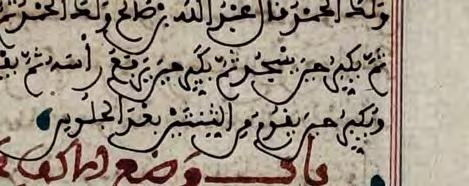 ولك الحمد قال عبد الله بن صالح ولك الحمد
ثم يكبر حين يسجد ثم يكبر حين يرفع رأسه ثم
ويكبر حين يقوم من الثنتين بعد الجلوس
باب وضع الأكف